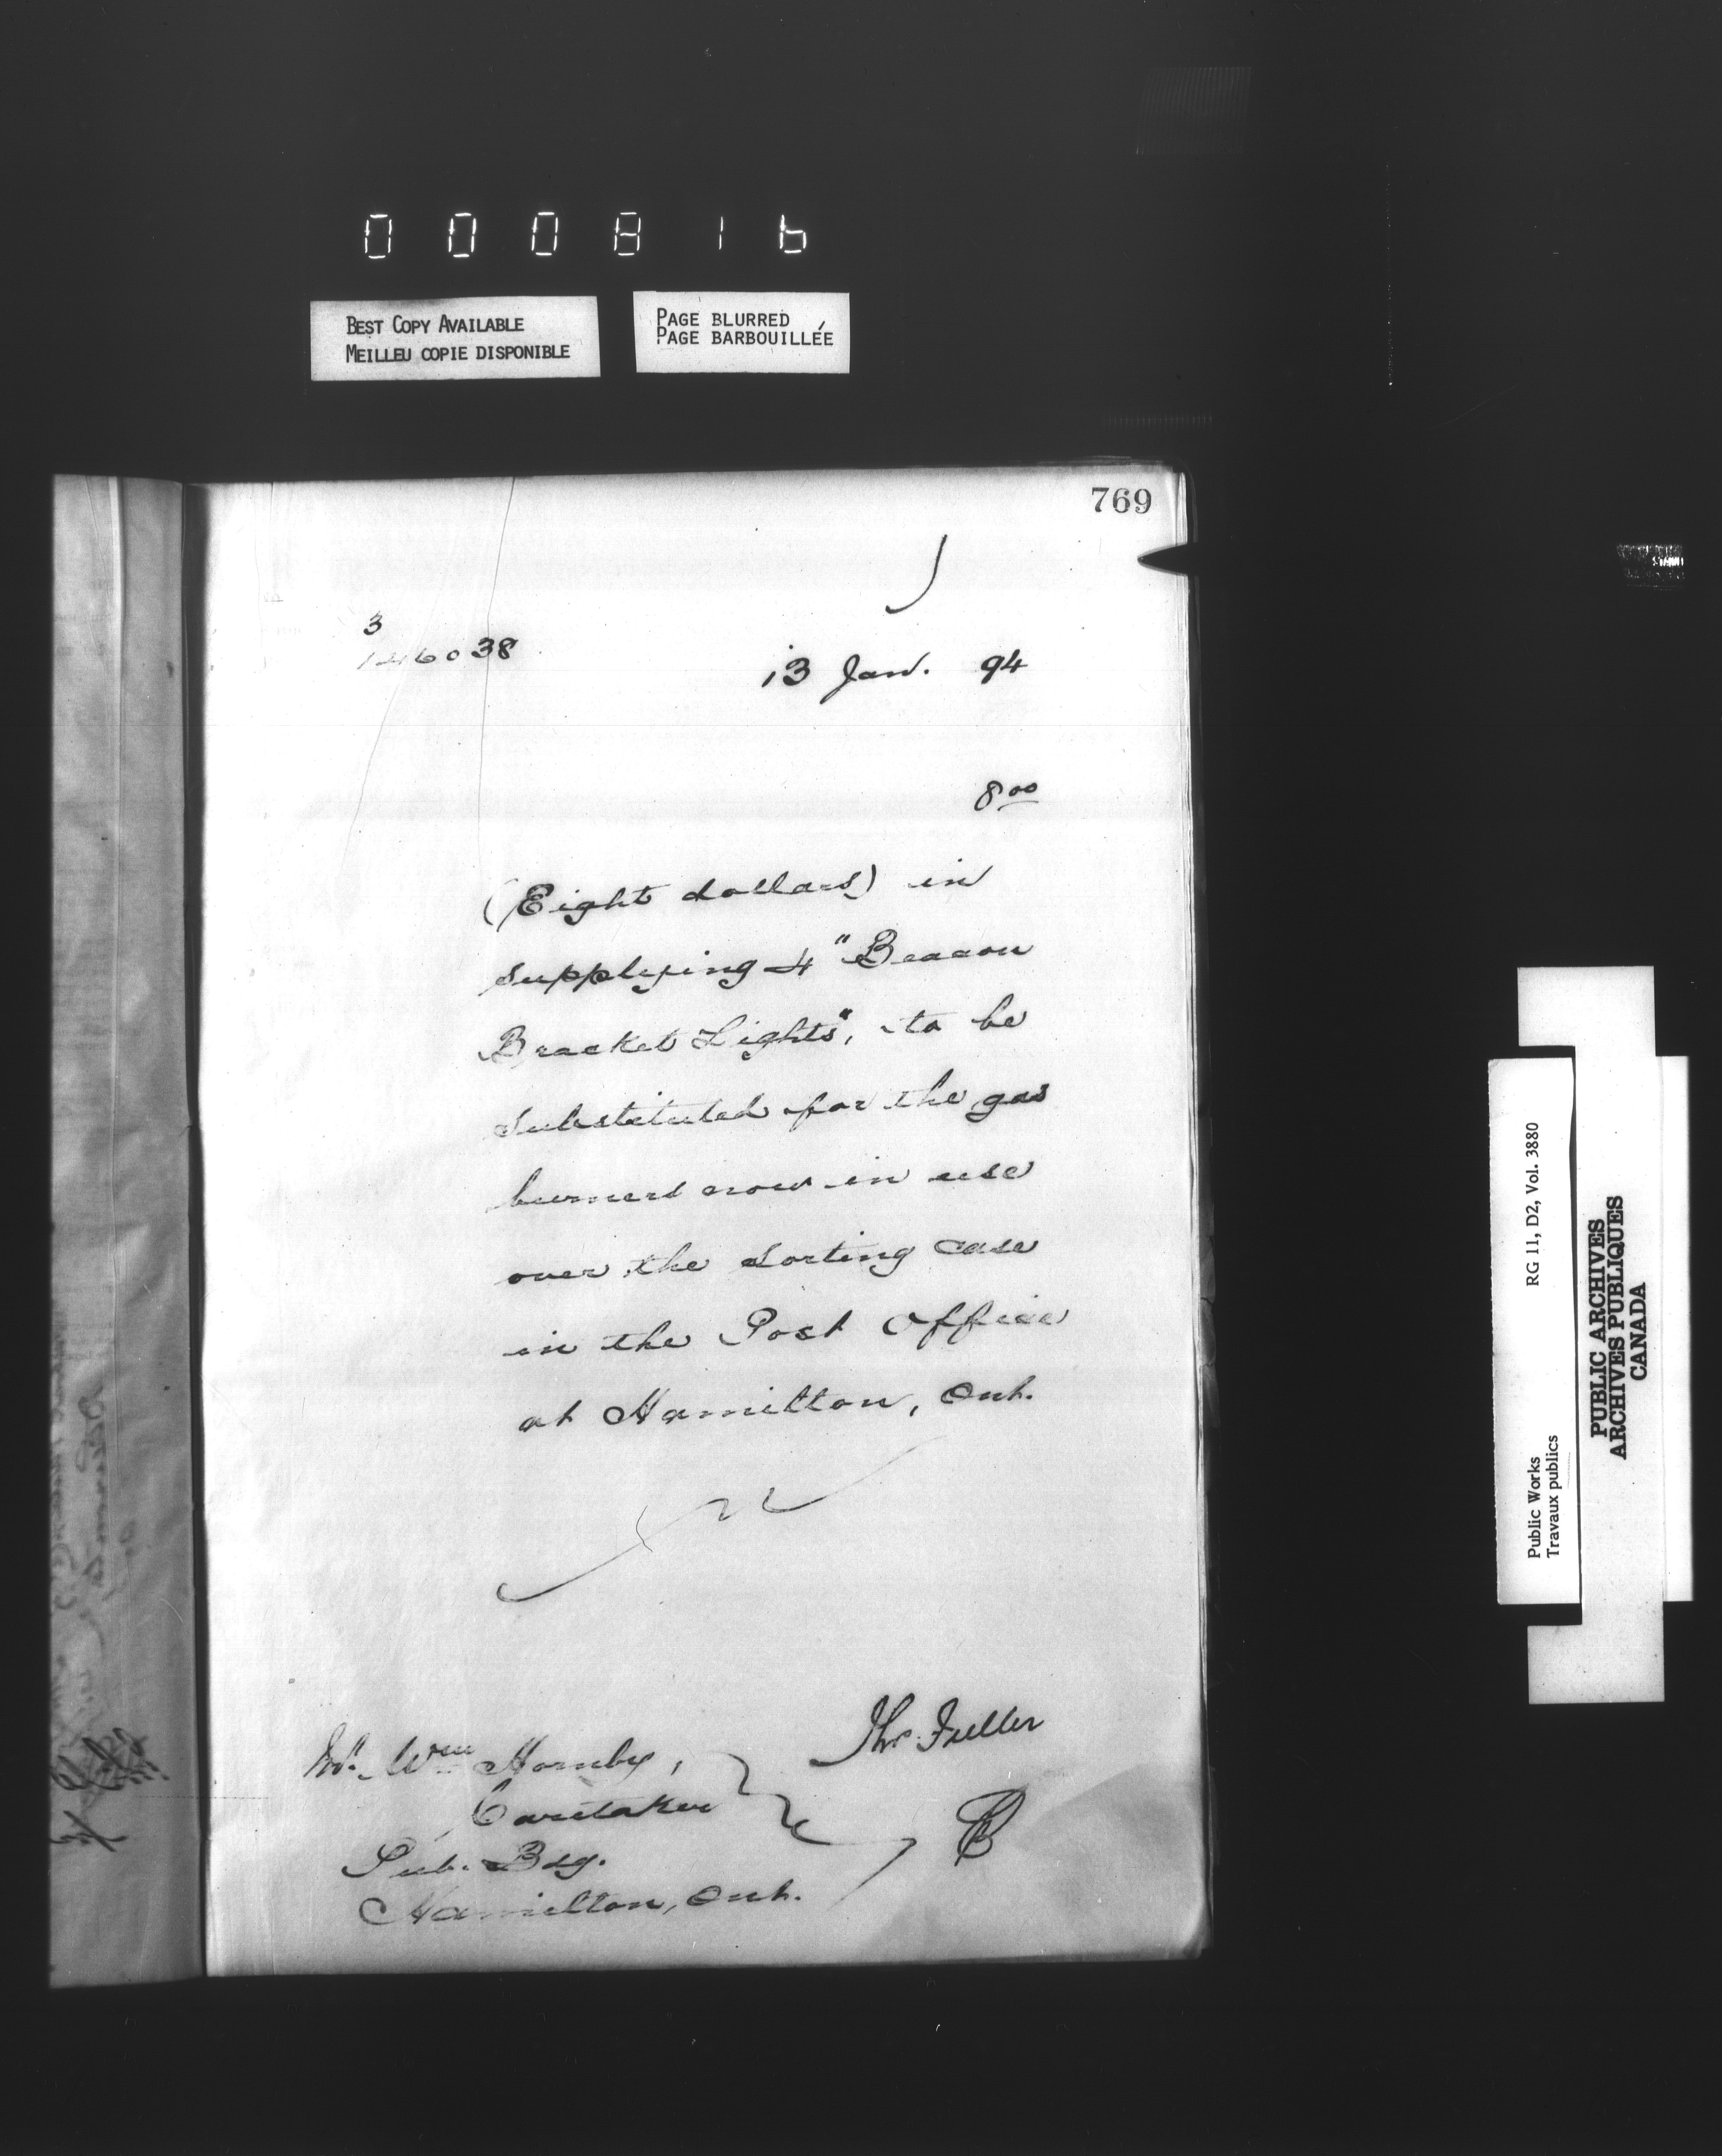 000816
BEST COPY AVAILABLE
MEILLEU COPIE DISPONIBLE
PAGE BLURRED
PAGE BARBOUILLÉE
769
3
146038
13 Jan. 94
8 00
(Eight dollars) in
supplying 4 "Beacon
Bracket Lights", to be
substituted for the gas
burners now in use
over the sorting case
in the Post Office
at Hamilton, Ont.
Thos. Fuller
Mr. Wm Hornby,
Caretaker
Pub. Bdg.
Hamilton, Ont.
RG 11, D2, Vol. 3880
Public Works
Travaux publics
PUBLIC ARCHIVES
ARCHIVES PUBLIQUES
CANADA